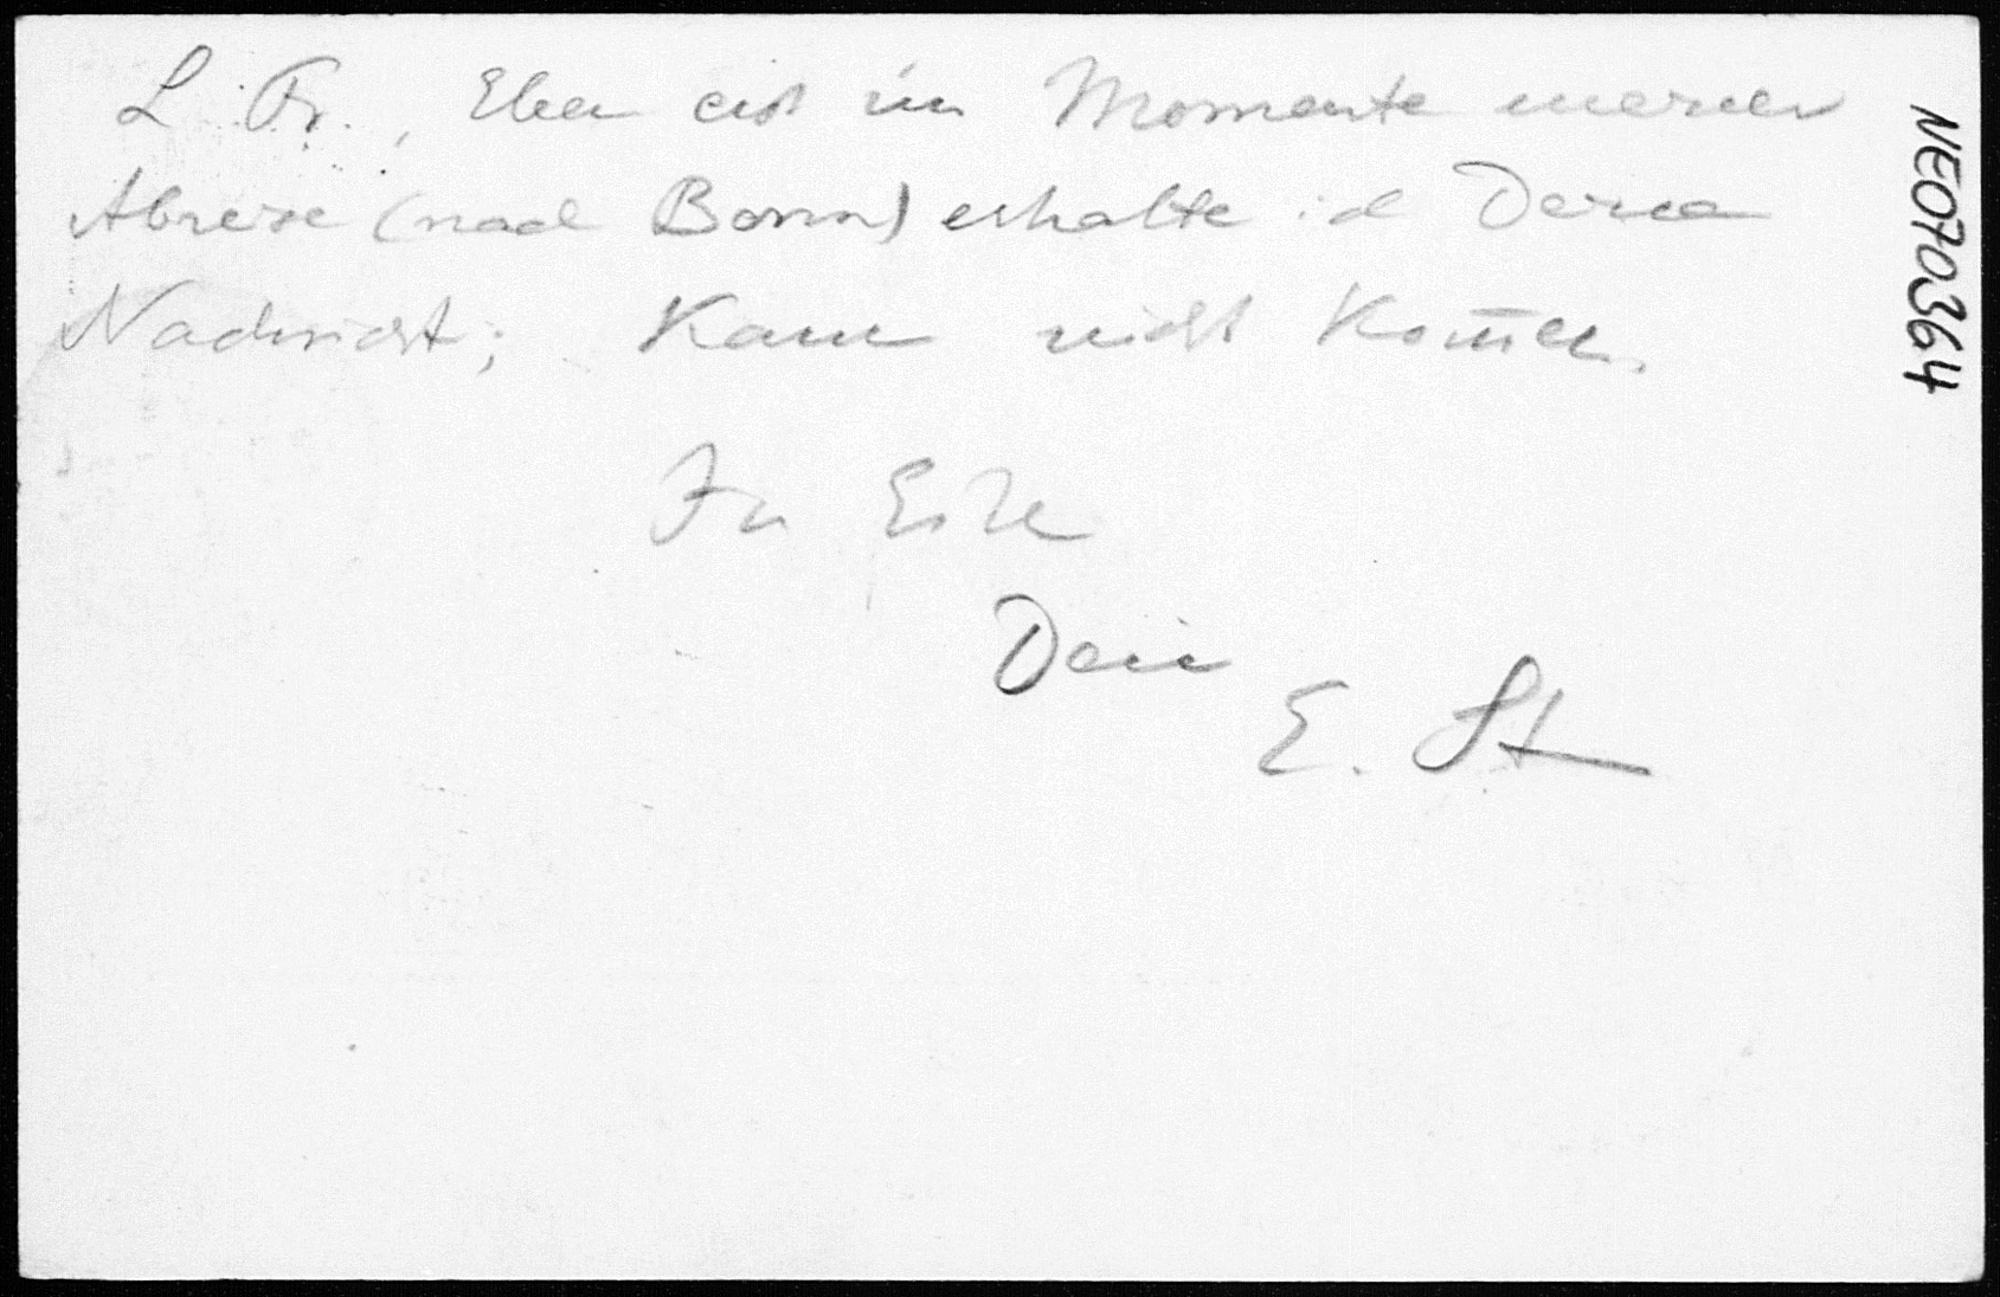 L. Fr., Eben erst im Momente meiner
Abreise (nach Bonn) erhalte ich Deine
Nachricht; Kann nicht kom̄en.
In Eile
Dein
E. St
NEO70364